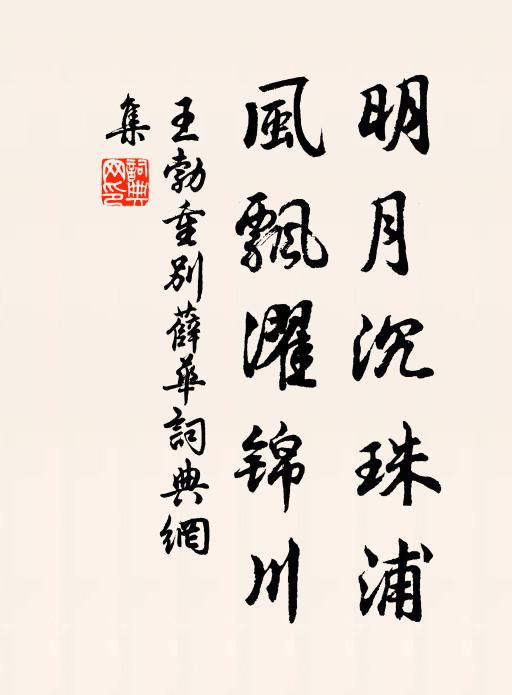 明月沉珠浦
風飄濯锦川
王勃重別薛華詞典網
集
詞典網印